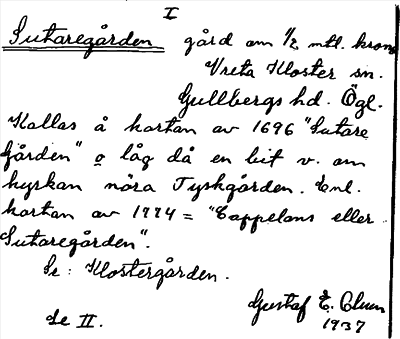 I
Sutaregården gård om 1/2 mtl. krono
Vreta Kloster sn.
Gullbergs hd. Ögl.
Kallas å kartan av 1696 "Sutare
Gården" o låg då en bit v. om
kyrkan nära Tyskgården. Enl.
kartan av 1774 = "Cappelans eller
Sutaregården".
Se: Klostergården.
Gustaf E. Clum
Se II. 1937